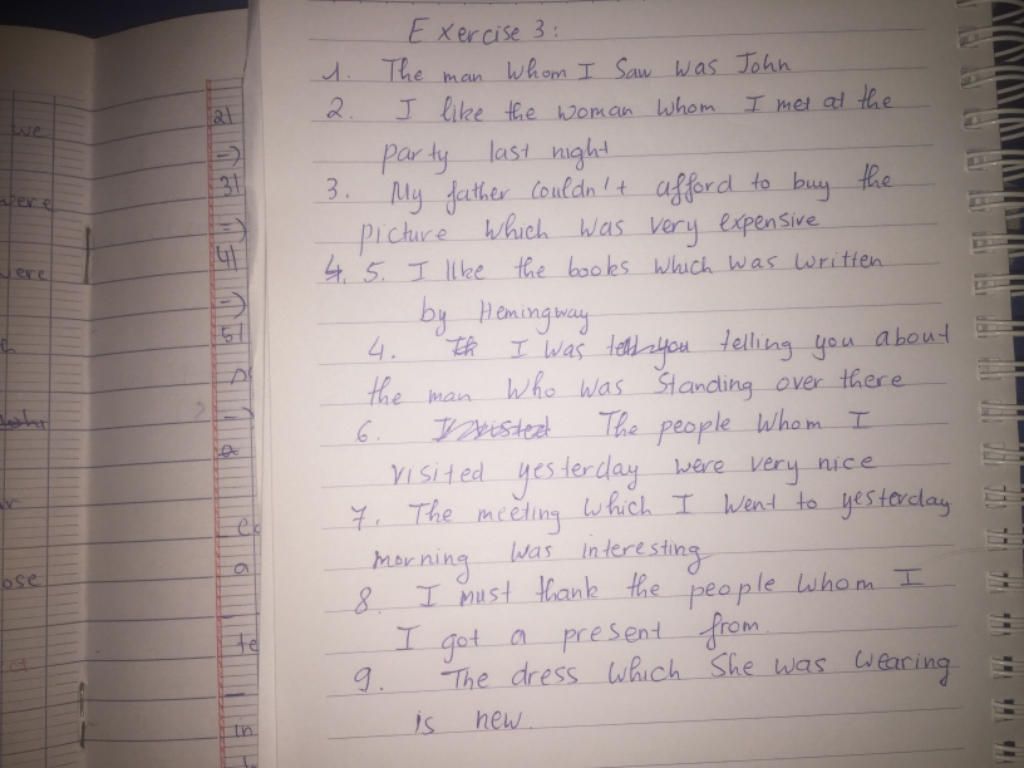 Exercise 3:
1. The man whom I saw was John
2. I like the woman whom I met at the
party last night
3. My father couldn't afford to buy the
picture which was very expensive
4. 5. I like the books which was written
by Hemingway
4. I was telling you about
the man who was standing over there
6. The people whom I
visited yesterday were very nice
7. The meeting which I went to yesterday
morning was interesting
8. I must thank the people whom I
I got a present from.
9. The dress which she was wearing
is new.
we
were
were
ose
2)
=)
3)
=)
4)
=)
5)
a
te
in